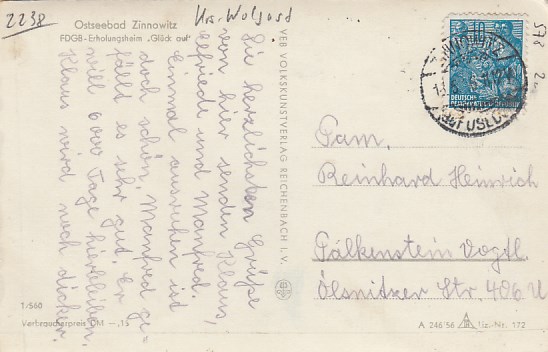 2238
Krs. Wolgast
Ostseebad Zinnowitz
FDGB-Erholungsheim „Glück auf"
Die herzlichsten Grüße
von hier senden Klaus,
Elfriede und Manfred.
Einmal ausruhen ist
doch schön. Manfred ge-
fällt es sehr gut. Er
will 6000 Tage hierbleiben.
Klaus wird noch dicker.
T/560
Verbraucherpreis DM —,15
VEB VOLKSKUNSTVERLAG REICHENBACH I. V.
578
10
DEUTSCHE
USEDOM
Fam.
Reinhard Heinrich
Falkenstein Vogtl.
Ölsnitzer Str. 406 U
A 246/56 Liz.-Nr. 172